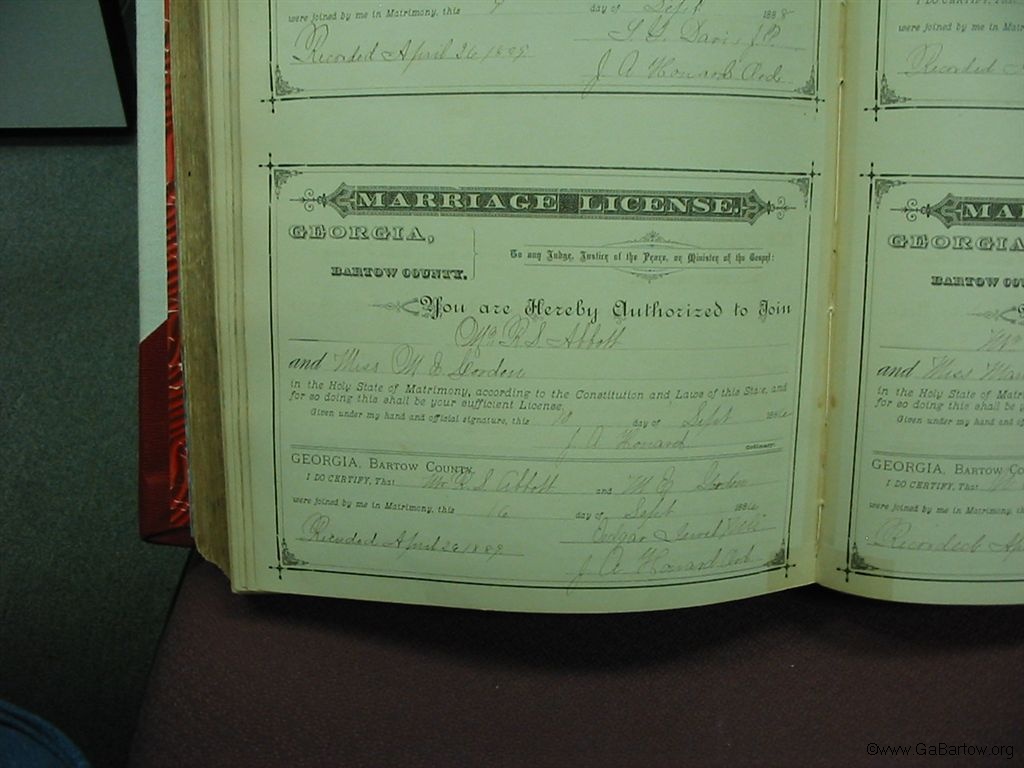 were joined by me in Matrimony, this 9 day of Sept 1888
S. G. Davis, J.P.
Recorded April 26, 1889
J A Howard Ord.
MARRIAGE LICENSE.
GEORGIA,
BARTOW COUNTY.
To any Judge, Justice of the Peace, or Minister of the Gospel:
You are Hereby Authorized to Join
Mr R S Abbott
and Miss M E
in the Holy State of Matrimony, according to the Constitution and Laws of this State, and
for so doing this shall be your sufficient License,
Given under my hand and official signature, this day of Sept 188
J A Howard Ordinary.
GEORGIA, BARTOW COUNTY.
I DO CERTIFY, That Mr R S Abbott and M E
were joined by me in Matrimony, this 16 day of Sept 188
Edgar Jewel
Recorded April 26 1889
J A Howard Ord
I DO CERTIFY, That
were joined by me in Matrimony, th
Recorded
MA
GEORGIA
BARTOW COU
Mr
and Miss
in the Holy State of Matr
for so doing this shall be y
Given under my hand and of
GEORGIA, BARTOW CO
I DO CERTIFY, That
were joined by me in Matrimony, th
Recorded Ap
©www.GaBartow.org